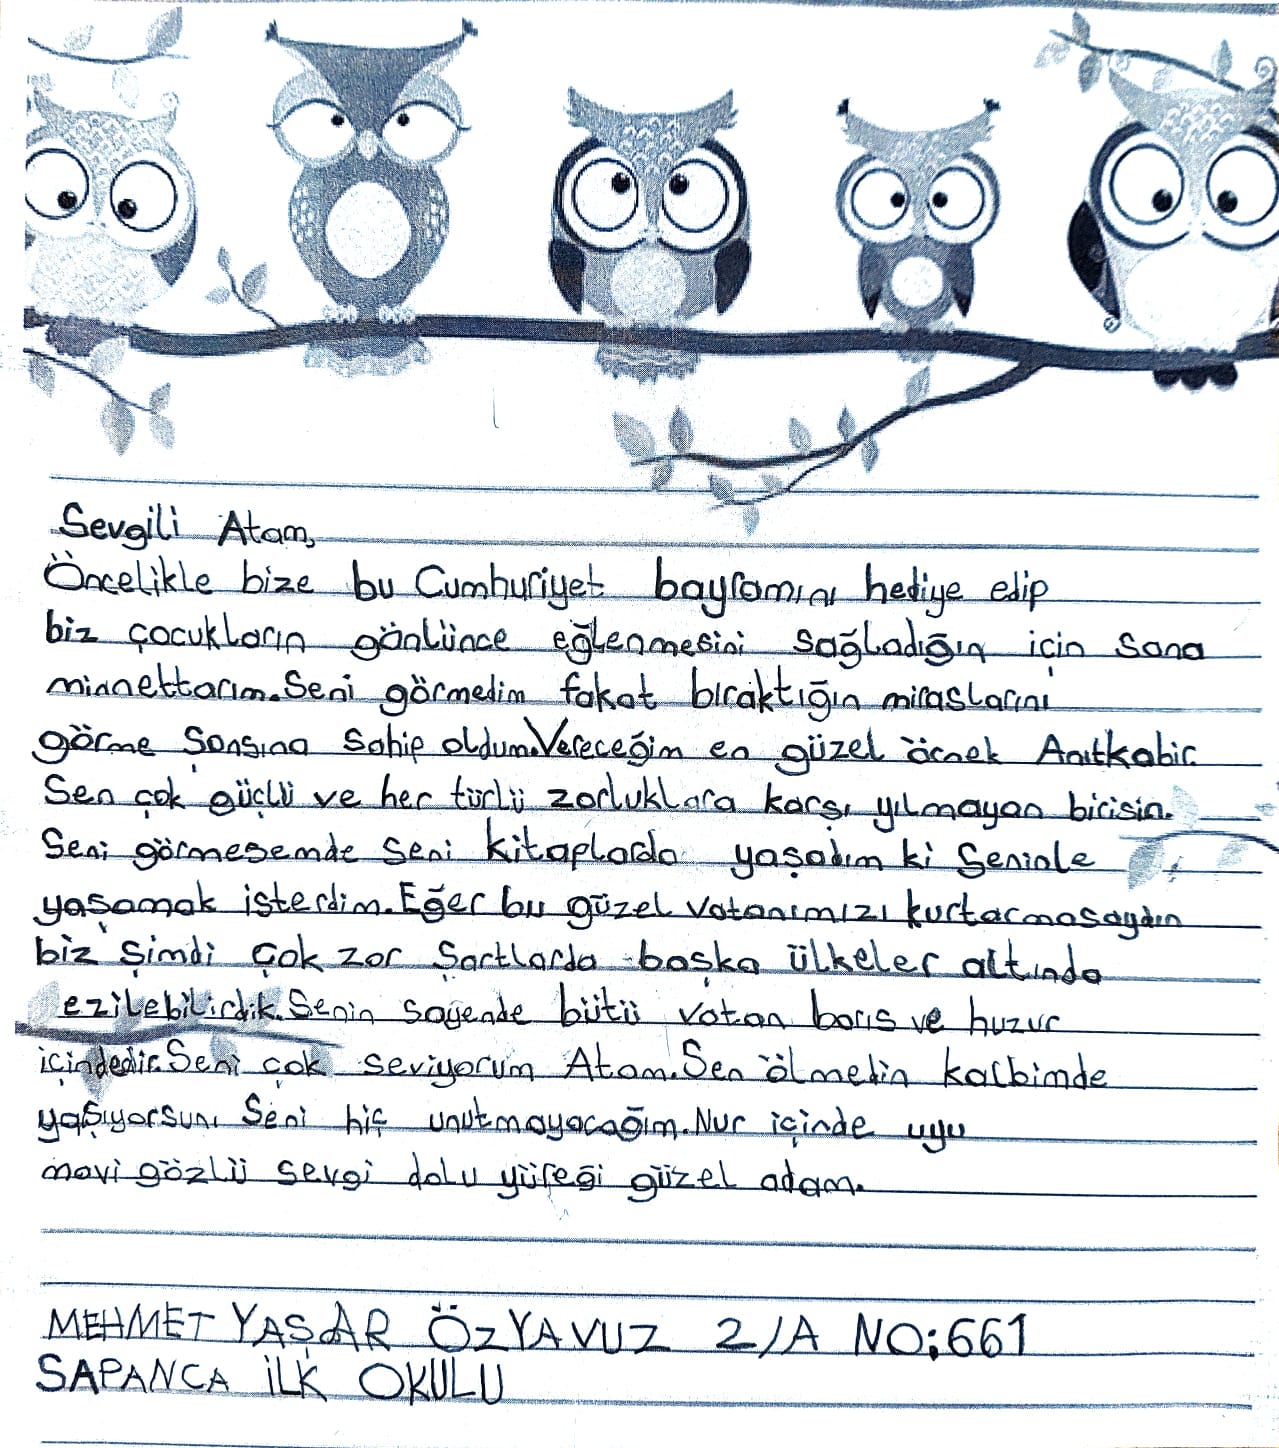 Sevgili Atam,
Öncelikle bize bu Cumhuriyet bayramını hediye edip
biz çocukların gönlünce eğlenmesini sağladığın için sana
minnettarım. Seni görmedim fakat bıraktığın miraslarını
görme şansına sahip oldum. Vereceğim en güzel örnek Anıtkabir.
Sen çok güçlü ve her türlü zorluklara karşı yılmayan birisin.
Seni görmesemde seni kitaplarda yaşadım ki Seninle
yaşamak isterdim. Eğer bu güzel vatanımızı kurtarmasaydın
biz şimdi çok zor şartlarda başka ülkeler altında
ezilebilirdik. Senin sayende bütü vatan barıs ve huzur
içindedir. Seni çok seviyorum Atam. Sen ölmedin kalbimde
yaşıyorsun. Seni hiç unutmayacağım. Nur içinde uyu
mavi gözlü sevgi dolu yüreği güzel adam.
MEHMET YAŞAR ÖZYAVUZ 2/A NO:661
SAPANCA İLK OKULU